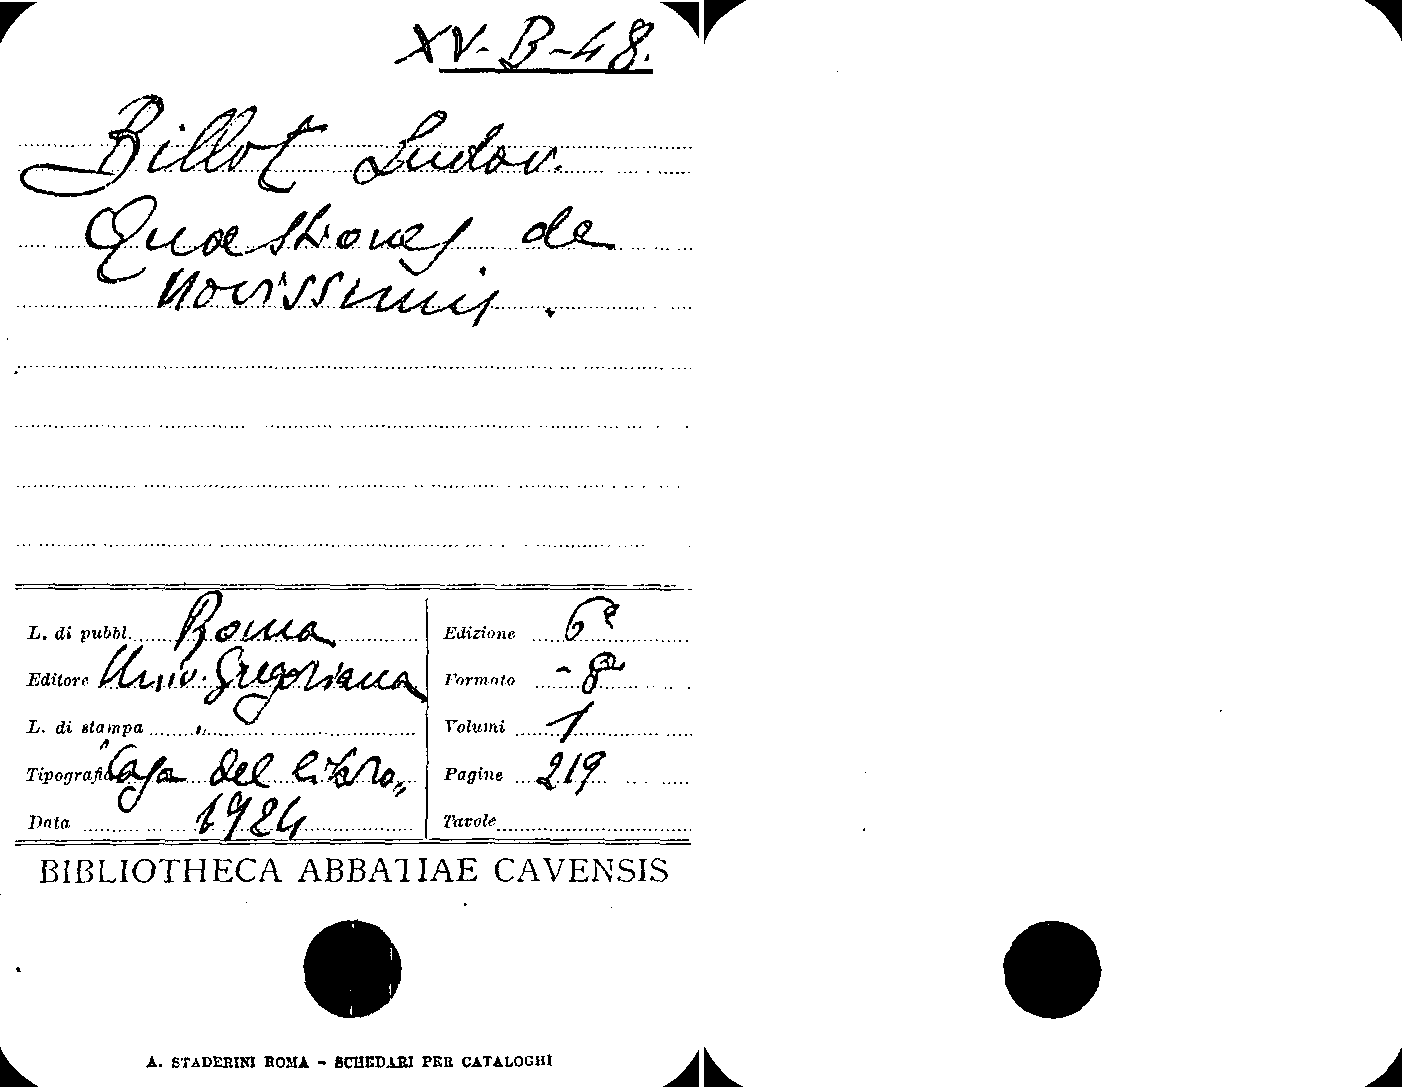 XV-B-48.
Billot Ludov.
Quaestiones de
novissimis.
L. di pubbl. Roma
Editore Univ. Gregoriana
L. di stampa "
Tipografia "Casa del libro"
Data 1924
Edizione 6ª
Formato -8º
Volumi 1
Pagine 219
Tavole
BIBLIOTHECA ABBATIAE CAVENSIS
A. STADERINI ROMA - SCHEDARI PER CATALOGHI